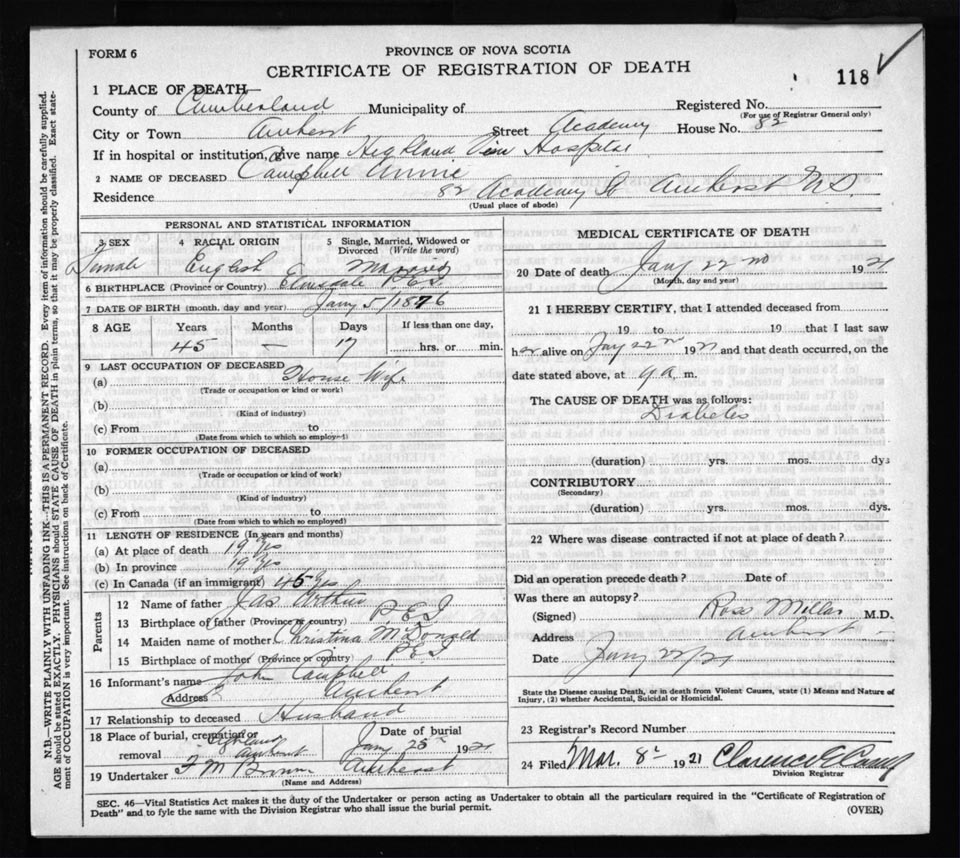 FORM 6
PROVINCE OF NOVA SCOTIA
CERTIFICATE OF REGISTRATION OF DEATH
118
1 PLACE OF DEATH—
County of Cumberland Municipality of Registered No.
(For use of Registrar General only)
City or Town Amherst Street Academy House No. 82
If in hospital or institution, give name Highland View Hospital
2 NAME OF DECEASED Campbell Annie
Residence 82 Academy St Amherst N.S.
(Usual place of abode)
PERSONAL AND STATISTICAL INFORMATION
3 SEX 4 RACIAL ORIGIN 5 Single, Married, Widowed or Divorced (Write the word)
Female English Married
6 BIRTHPLACE (Province or Country) P.E.I
7 DATE OF BIRTH (month, day and year) Jany 5/1876
8 AGE Years Months Days If less than one day,
45 — 17 hrs. or min.
9 LAST OCCUPATION OF DECEASED
(a) House Wife
(Trade or occupation or kind of work)
(b)
(Kind of industry)
(c) From to
(Date from which to which so employed)
10 FORMER OCCUPATION OF DECEASED
(a)
(Trade or occupation or kind of work)
(b)
(Kind of industry)
(c) From to
(Date from which to which so employed)
11 LENGTH OF RESIDENCE (In years and months)
(a) At place of death 19 yrs
(b) In province 19 yrs
(c) In Canada (if an immigrant) 45 yrs
Parents
12 Name of father Jas
13 Birthplace of father (Province or country) P.E.I
14 Maiden name of mother Christina McDonald
15 Birthplace of mother (Province or country) P.E.I
16 Informant's name John Campbell
Address Amherst
17 Relationship to deceased Husband
18 Place of burial, cremation or removal Highland Amherst Date of burial Jany 25th 1921
19 Undertaker F M Brown Amherst
(Name and Address)
MEDICAL CERTIFICATE OF DEATH
20 Date of death Jany 22nd 1921
(Month, day and year)
21 I HEREBY CERTIFY, that I attended deceased from
19 to 19 that I last saw
her alive on Jany 22nd 1921 and that death occurred, on the
date stated above, at 9 a. m.
The CAUSE OF DEATH was as follows:
Diabetes
(duration) yrs. mos. dys
CONTRIBUTORY
(Secondary)
(duration) yrs. mos. dys.
22 Where was disease contracted if not at place of death?
Did an operation precede death? Date of
Was there an autopsy?
(Signed) Ross Millar M.D.
Address Amherst
Date Jany 22/21
State the Disease causing Death, or in death from Violent Causes, state (1) Means and Nature of
Injury, (2) whether Accidental, Suicidal or Homicidal.
23 Registrar's Record Number
24 Filed Mar. 8th 1921 Clarence
Division Registrar
SEC. 46—Vital Statistics Act makes it the duty of the Undertaker or person acting as Undertaker to obtain all the particulars required in the "Certificate of Registration of
Death" and to fyle the same with the Division Registrar who shall issue the burial permit.
(OVER)
N.B.—WRITE PLAINLY WITH UNFADING INK—THIS IS A PERMANENT RECORD. Every item of information should be carefully supplied.
AGE should be stated EXACTLY. PHYSICIANS should STATE CAUSE OF DEATH in plain terms, so that it may be properly classified. Exact state-
ment of OCCUPATION is very important. See instructions on back of Certificate.